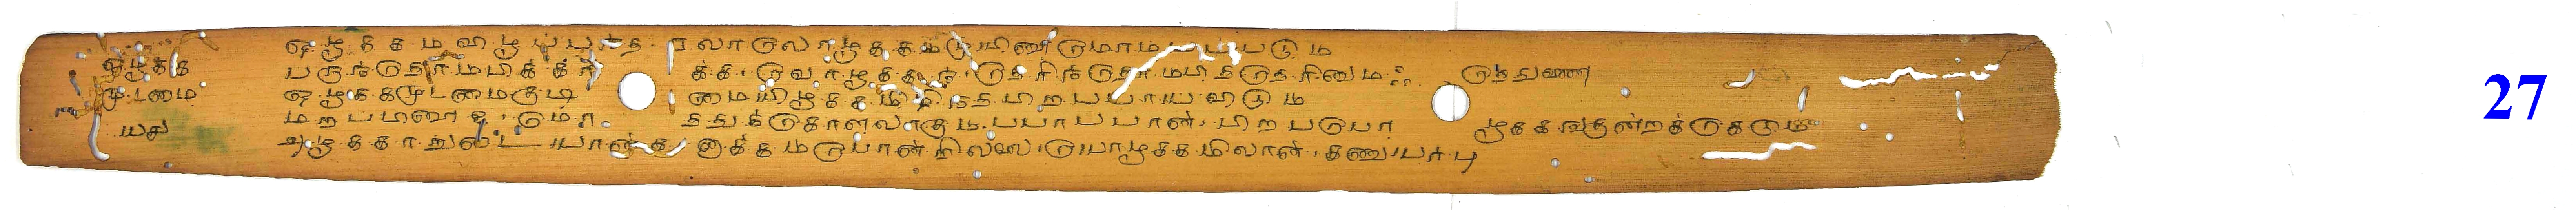 ஒழுகக முடமை யது
ஒழுககம விழுபபநத ரலாலொழுககமுயிரினுமொமபபபடும
பருநதொமபிககா கக வொழுககந தெரிநதொமபிததெரினும ஃதெதுணை
ஒழுககமுடமைகுடி மையிழுககமிழிநத பிறபபாய விடும
மறபபினுமொ ததுககொளலாகும பாபபான பிறபபொ ழுககங குனறககெடும
அழுககாறுடையானக ணாககமபொனறிலலையொழுககமிலானகணுயரபு